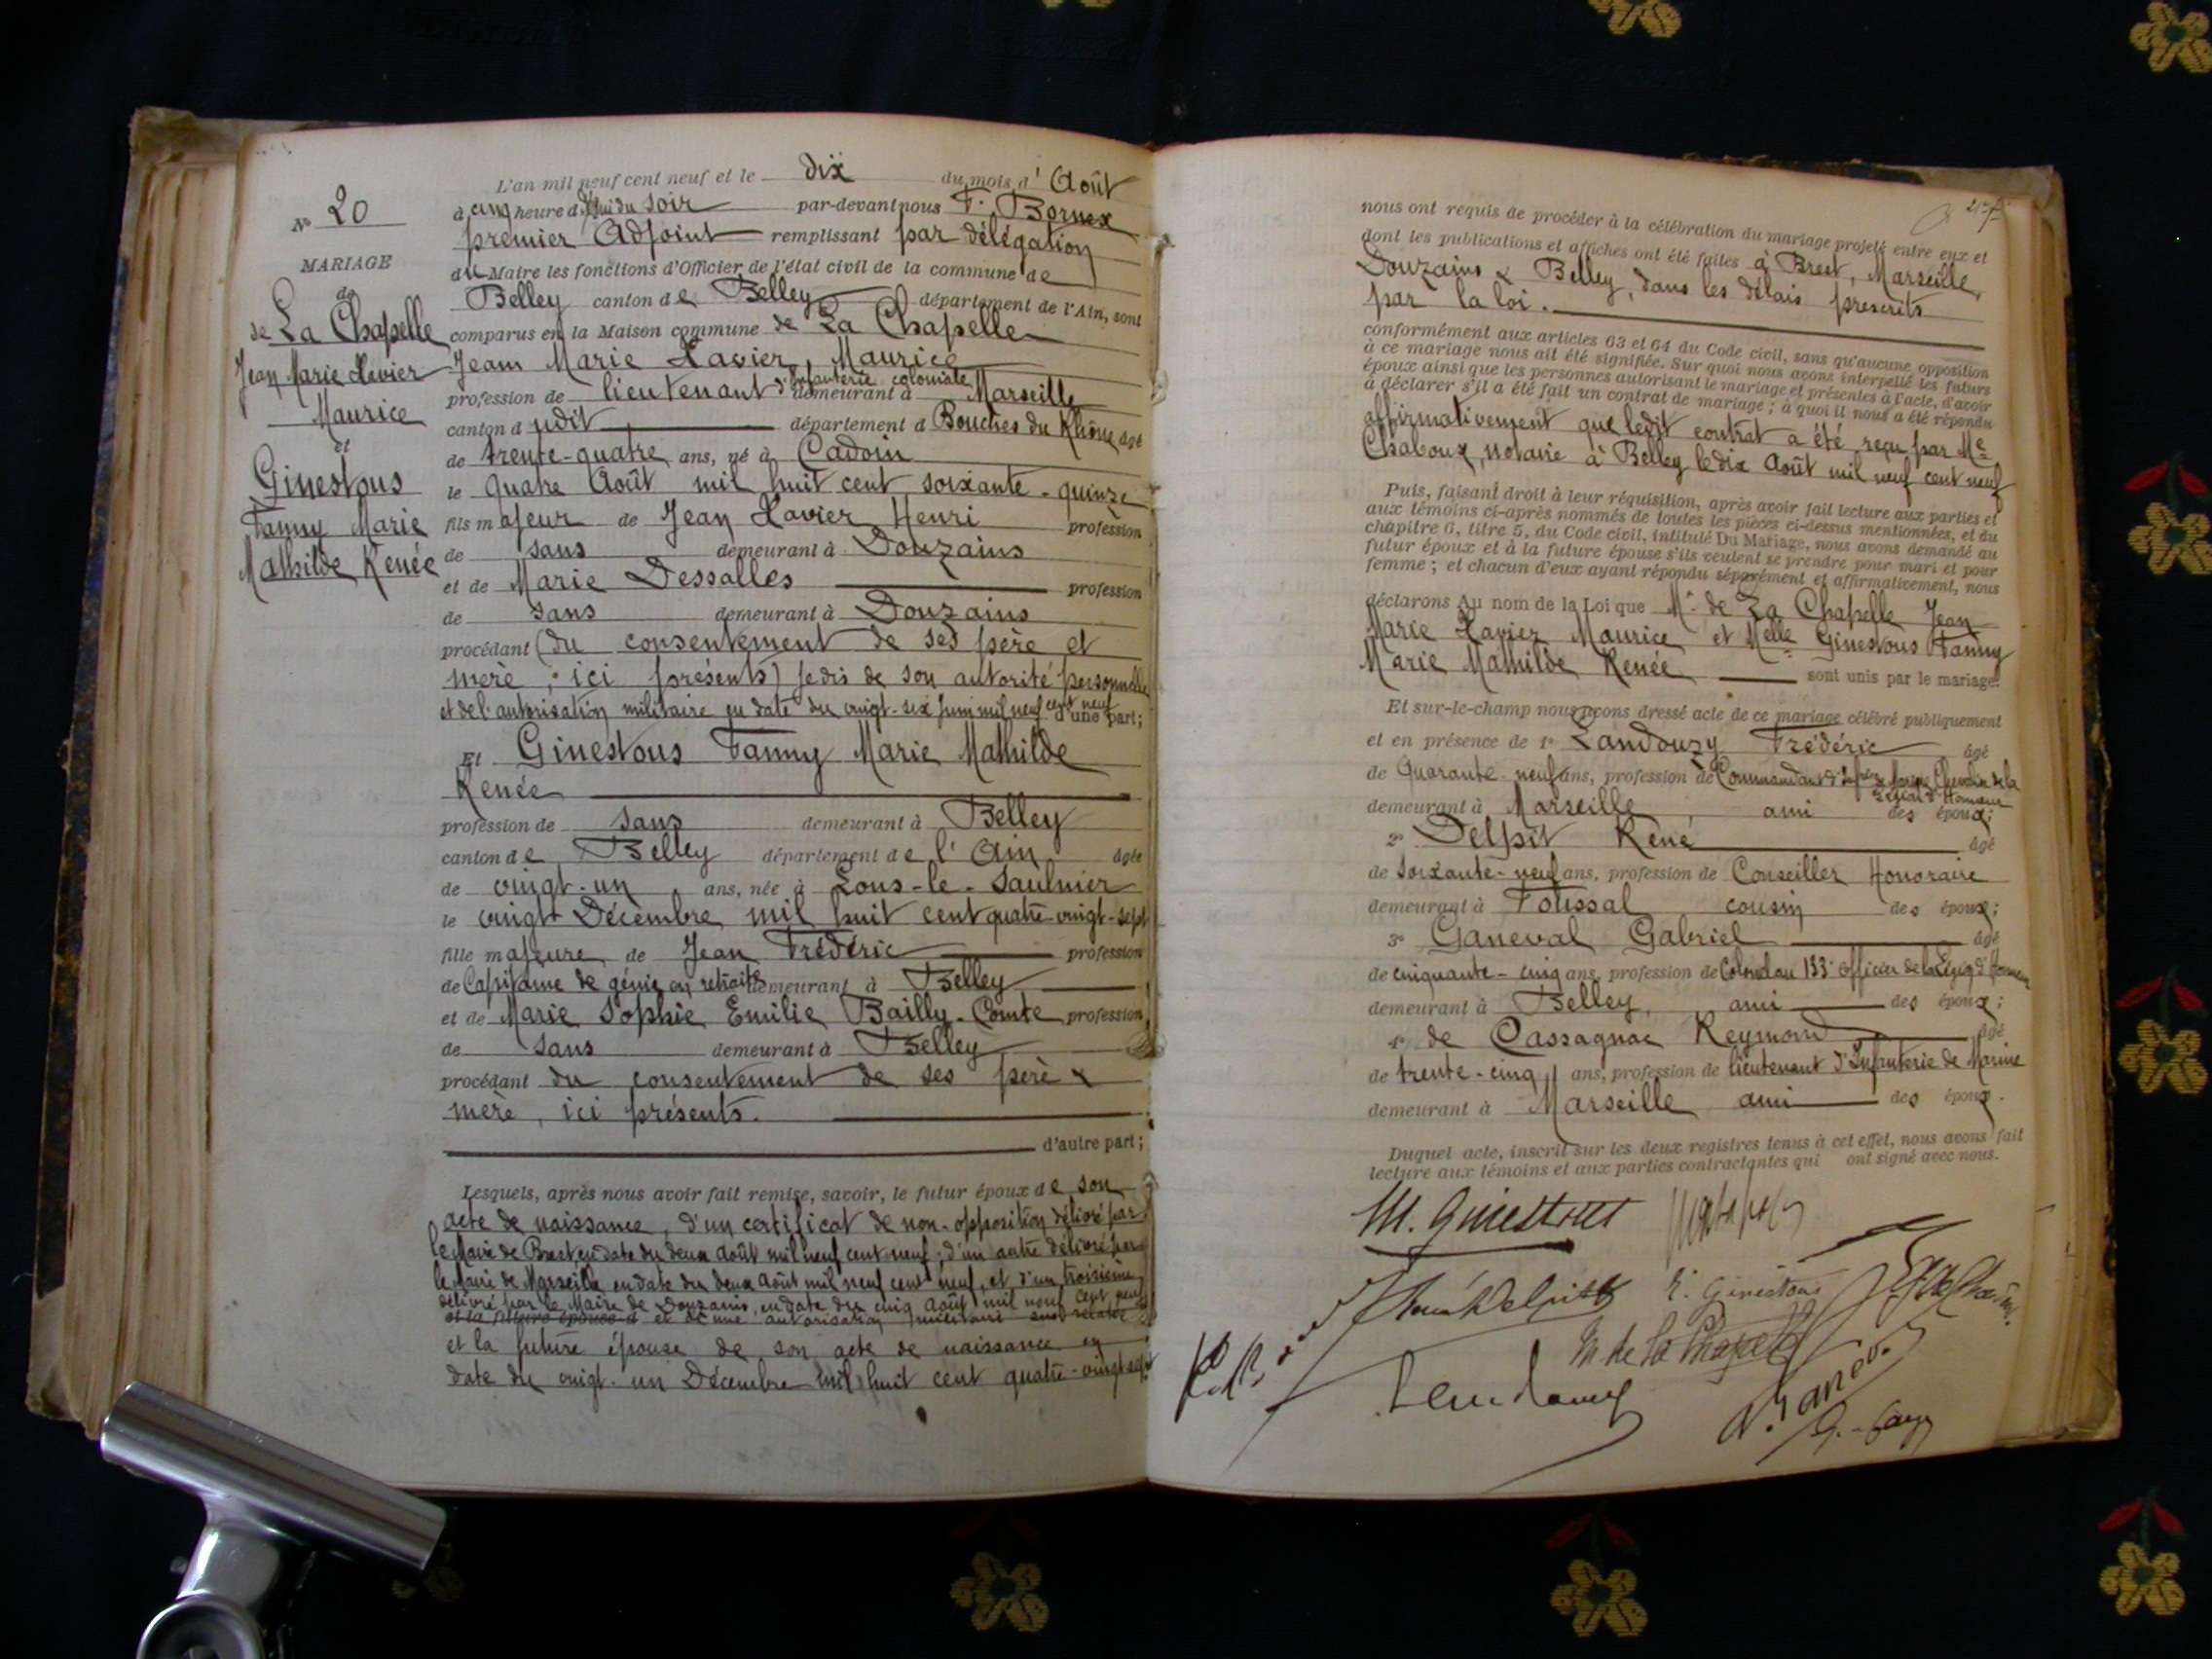 N° 20
MARIAGE
de
de La Chapelle
Jean Marie Xavier
Maurice
et
Ginestous
Fanny Marie
Mathilde Renée
L'an mil neuf cent neuf et le dix du mois d' Août
à cinq heure d du soir par-devant nous F. Bornex
premier Adjoint remplissant par délégation
du Maire les fonctions d'Officier de l'état civil de la commune de
Belley canton de Belley département de l'Ain, sont
comparus en la Maison commune de La Chapelle
Jean Marie Xavier, Maurice
profession de lieutenant d'Infanterie coloniale demeurant à Marseille
canton d udit département d Bouches du Rhône âgé
de trente-quatre ans, né à Cadoin
le quatre Août mil huit cent soixante-quinze
fils majeur de Jean Xavier Henri profession
de sans demeurant à Douzains
et de Marie Dessalles profession
de sans demeurant à Douzains
procédant (du consentement de ses père et
mère, ici présents) je dis de son autorité personnelle
et de l'autorisation militaire en date du vingt-six juin mil neuf cent neuf d'une part;
Et Ginestous Fanny Marie Mathilde
Renée
profession de sans demeurant à Belley
canton de Belley département de l'Ain âgée
de vingt-un ans, née à Lons-le-Saulnier
le vingt Décembre mil huit cent quatre-vingt-sept
fille majeure de Jean Frédéric profession
de Capitaine de génie en retraite demeurant à Belley
et de Marie Sophie Emilie Bailly-Comte profession
de sans demeurant à Belley
procédant du consentement de ses père &
mère, ici présents.
d'autre part;
Lesquels, après nous avoir fait remise, savoir, le futur époux de son
acte de naissance, d'un certificat de non-opposition délivré par
le Maire de Brest en date du deux Août mil neuf cent neuf; d'un autre délivré par
le Maire de Marseille en date du deux Août mil neuf cent neuf, et d'un troisième
délivré par le Maire de Douzains, en date du cinq Août mil neuf cent neuf
et la future épouse d et de une autorisation militaire
et la future épouse de son acte de naissance en
date du vingt-un Décembre mil huit cent quatre-vingt-sept
nous ont requis de procéder à la célébration du mariage projeté entre eux et
dont les publications et affiches ont été faites à Brest, Marseille,
Douzains & Belley, dans les délais prescrits
par la loi.
conformément aux articles 63 et 64 du Code civil, sans qu'aucune opposition
à ce mariage nous ait été signifiée. Sur quoi nous avons interpellé les futurs
époux ainsi que les personnes autorisant le mariage et présentes à l'acte, d'avoir
à déclarer s'il a été fait un contrat de mariage; à quoi il nous a été répondu
affirmativement que ledit contrat a été reçu par Me
Chaboux, notaire à Belley le dix Août mil neuf cent neuf
Puis, faisant droit à leur réquisition, après avoir fait lecture aux parties et
aux témoins ci-après nommés de toutes les pièces ci-dessus mentionnées, et du
chapitre 6, titre 5, du Code civil, intitulé Du Mariage, nous avons demandé au
futur époux et à la future épouse s'ils veulent se prendre pour mari et pour
femme; et chacun d'eux ayant répondu séparément et affirmativement, nous
déclarons Au nom de la Loi que Mr de La Chapelle Jean
Marie Xavier Maurice et Melle Ginestous Fanny
Marie Mathilde Renée sont unis par le mariage.
Et sur-le-champ nous avons dressé acte de ce mariage célébré publiquement
et en présence de 1° Landouzy Frédéric âgé
de Quarante-neuf ans, profession de Commandant d'Infrie de Marine Chevalier de la
Légion d'Honneur
demeurant à Marseille ami des époux;
2° Delpit René âgé
de soixante-neuf ans, profession de Conseiller Honoraire
demeurant à Foussal cousin des époux;
3° Ganeval Gabriel âgé
de cinquante-cinq ans, profession de Colonel au 133e officier de la Légion d'Honneur
demeurant à Belley, ami des époux;
4° de Cassagnac Reymond âgé
de trente-cinq ans, profession de lieutenant d'Infanterie de Marine
demeurant à Marseille ami des époux.
Duquel acte, inscrit sur les deux registres tenus à cet effet, nous avons fait
lecture aux témoins et aux parties contractantes qui ont signé avec nous.
M. Ginestous
F. Ginestous
M de la Chapelle